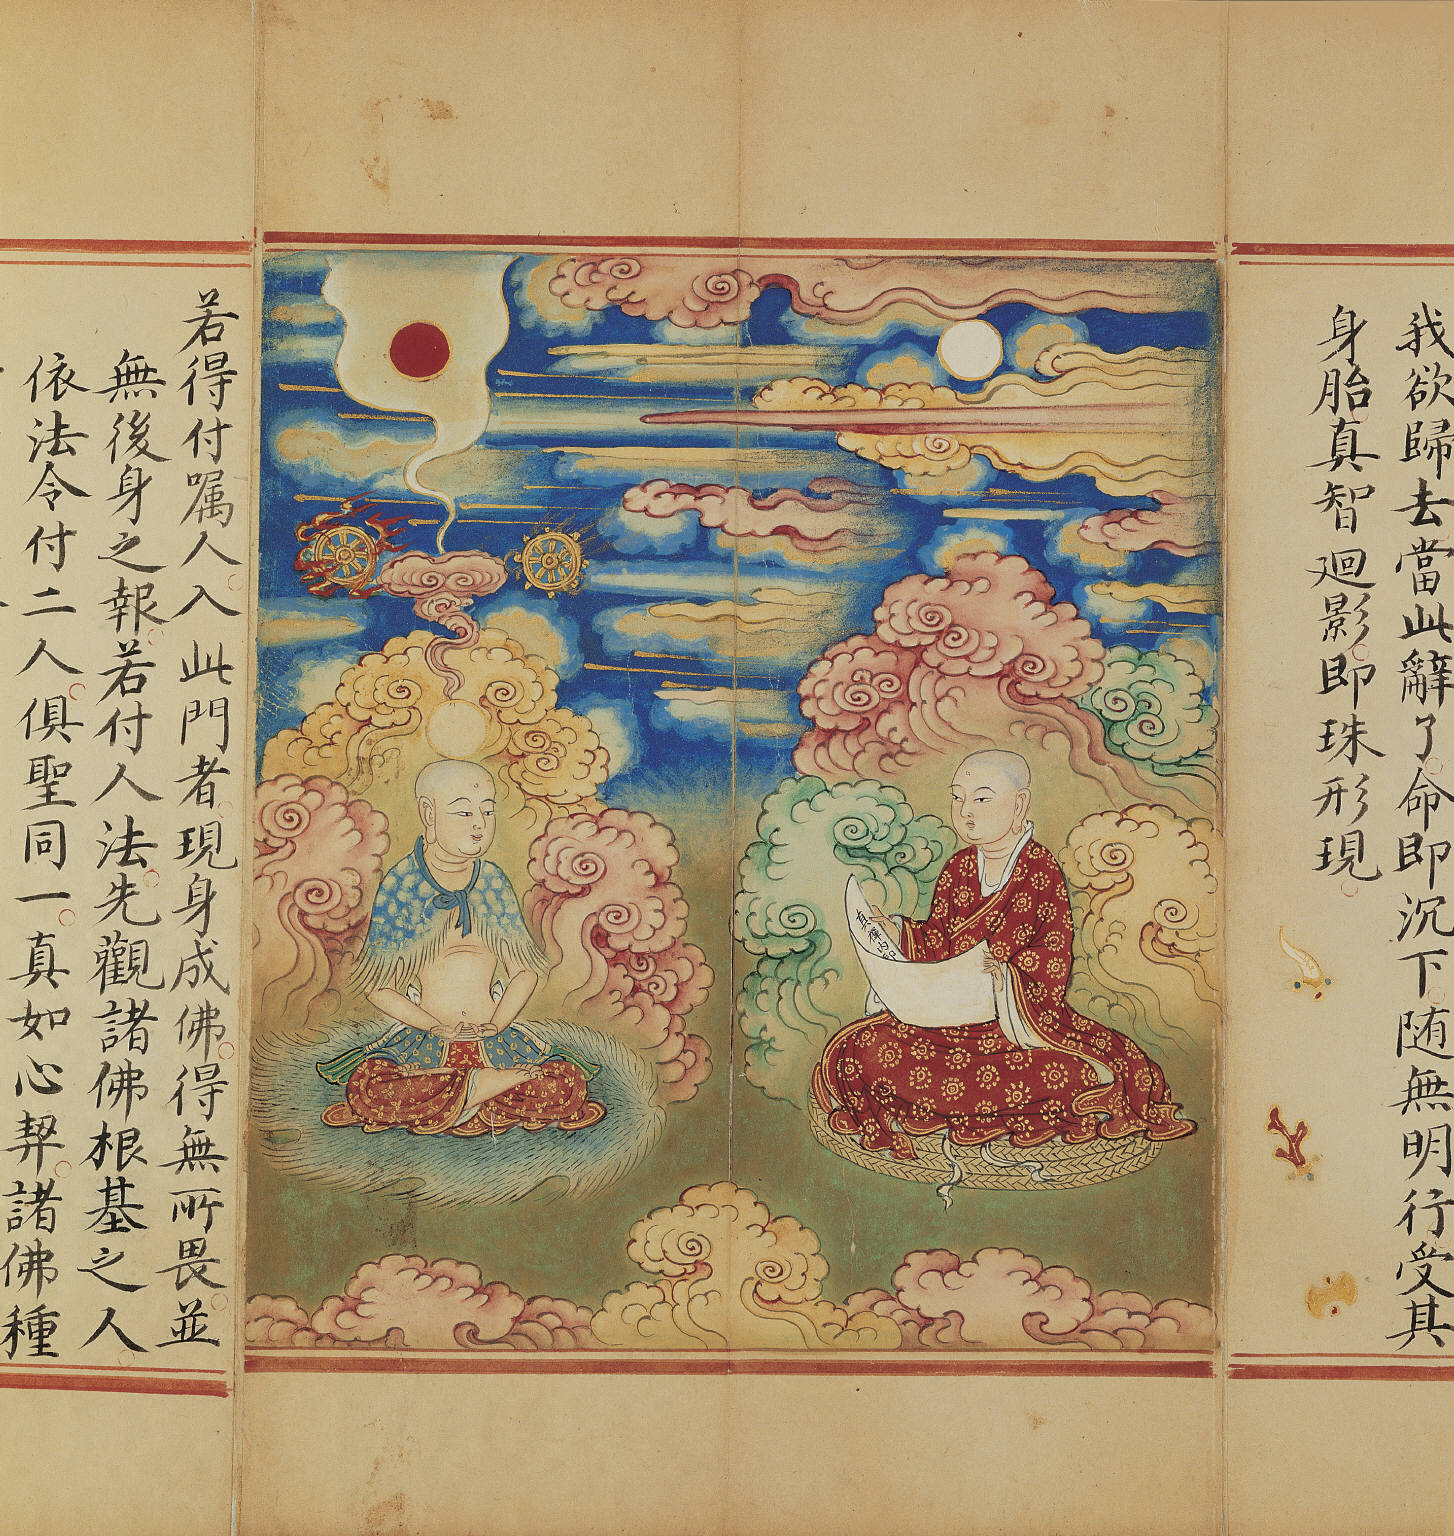 我欲歸去當此辭了命即沉下随無明行受其
身胎真智迴影即珠形現
真禪內印
若得付嘱人入此門者現身成佛得無所畏並
無後身之報若付人法先觀諸佛根基之人
依法令付二人俱聖同一真如心契諸佛種